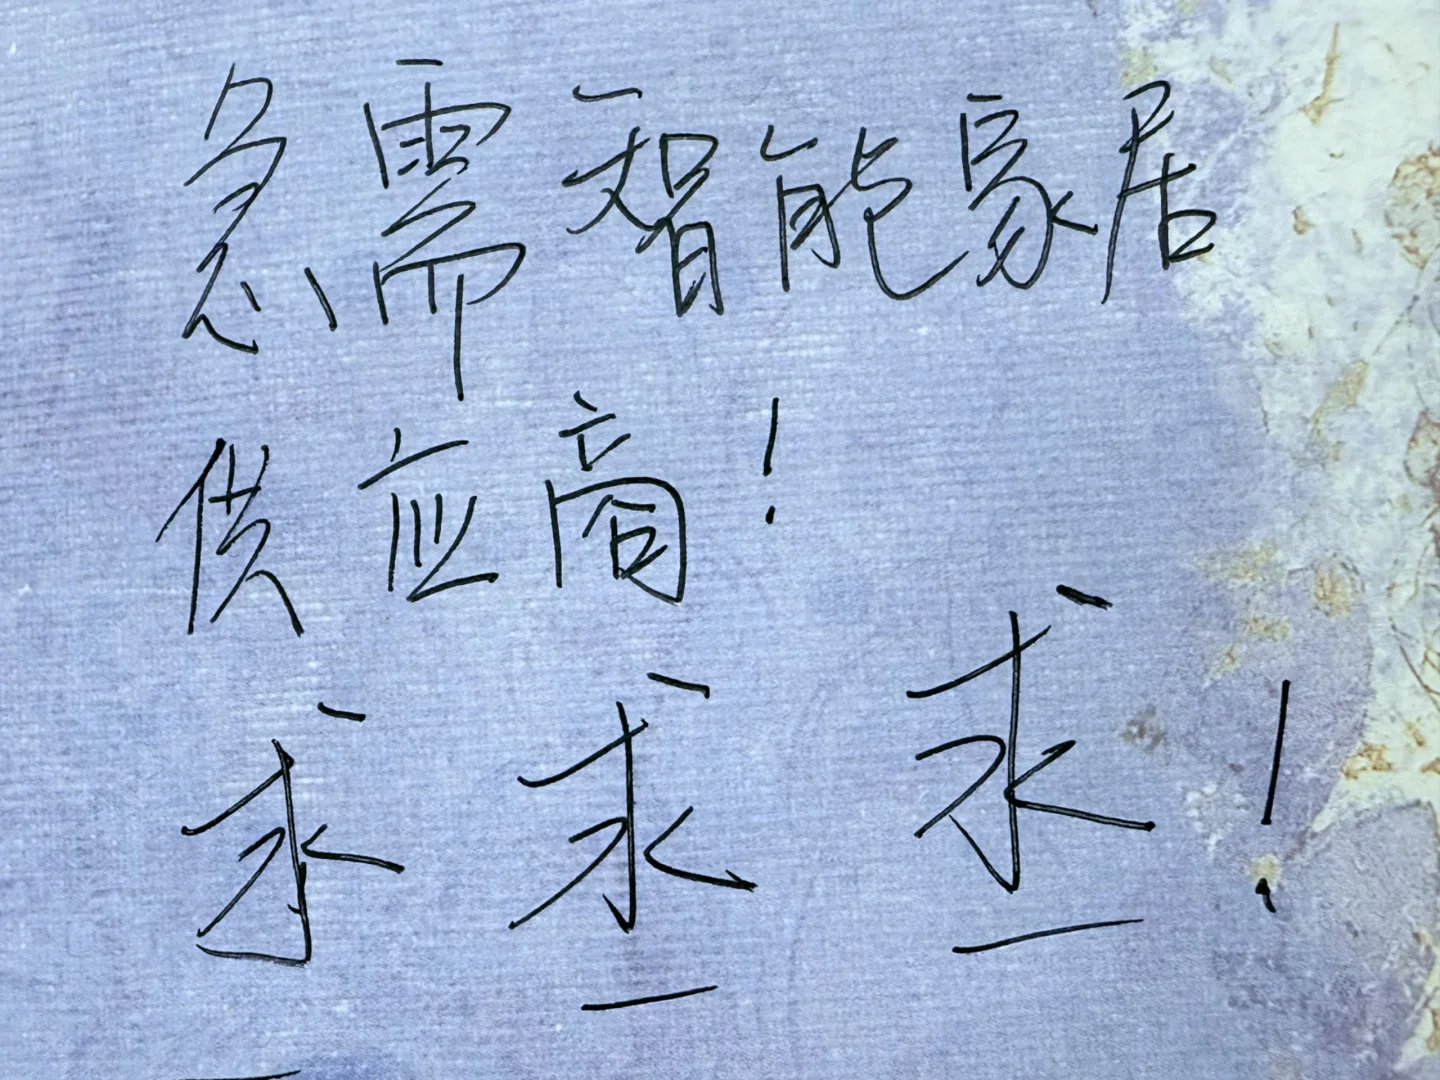 急需智能家居
供应商!
求求求!